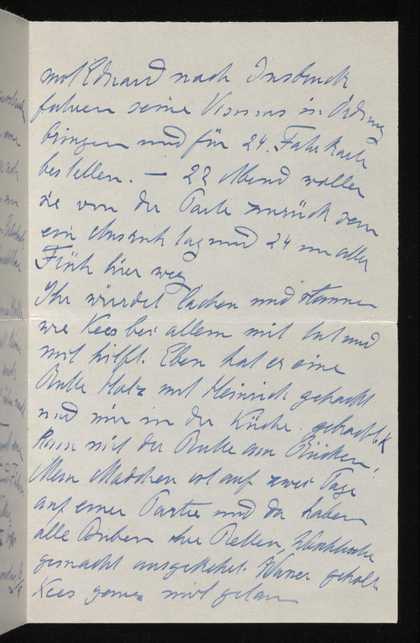 mit Eduard nach Insbruck
fahren seine Visums in Ordnung
bringen und für 24. Fahrkarte
bestellen. – 22 Abend wollen
sie von der Parte zurück sein
ein Ausruh tag und 24 in aller
Früh hier weg
Ihr würdet lachen und staunen
wie Kees bei allem mit tut und
mit hilft. Eben hat er eine
Butte Holz mit Heinrich gehackt
und mir in die Küche gebracht
mit der Butte am Rücken!
Mein Mädchen ist auf zwei Tage
auf einer Partie und da haben
alle Buben ihre Betten
gemacht ausgekehrt. Wasser geholt
Kees genau mit getan